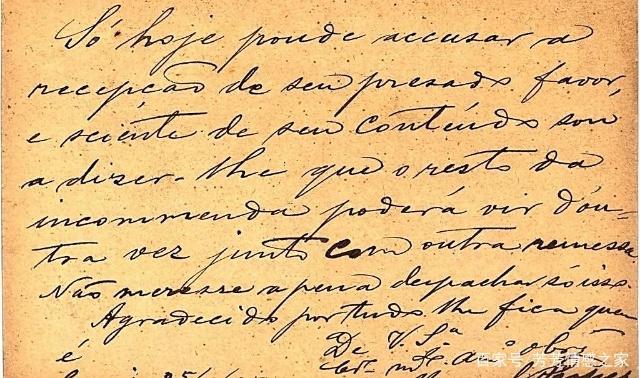 Só hoje poude accusar a
recepção de seu presado favor,
e sciente de seu contéudo sou
a dizer-lhe que o resto da
incommenda poderá vir d'ou-
tra vez junto com outra remessa.
Não meresse a pena despachar só isso.
Agradecido por tudo lhe fica quem
é
De V. S.ª
百家号 芳芳情感之家